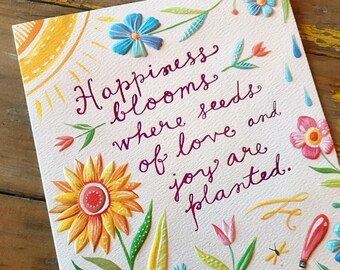 Happiness
blooms
where seeds
of love and
joy are
planted.